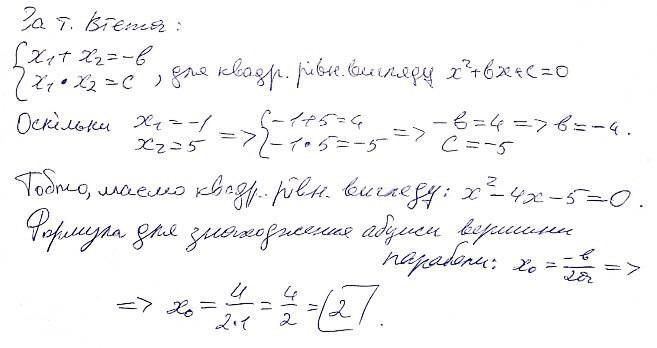 За т. Вієта:
{x₁ + x₂ = -b
{x₁ • x₂ = c , для квадр. рівн. вигляду x² + bx + c = 0
Оскільки x₁ = -1
x₂ = 5 => {-1+5=4
{-1•5=-5 => -b=4 => b=-4.
c=-5
Тобто, маємо квадр. рівн. вигляду: x² - 4x - 5 = 0.
Формула для знаходження абциси вершини
параболи: x₀ = -b/2a =>
=> x₀ = 4/2•1 = 4/2 = 2.